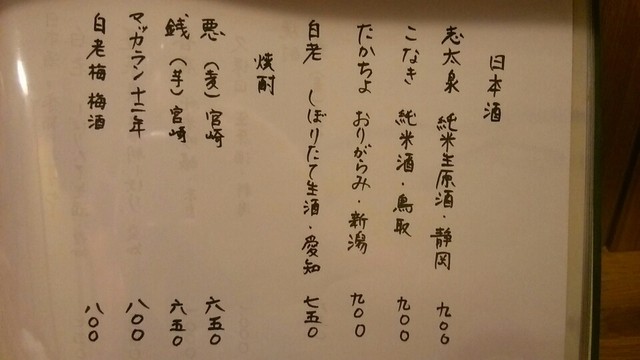 日本酒
志太泉 純米生原酒・静岡 九〇〇
こなき 純米酒・鳥取 九〇〇
たかちよ おりがらみ・新潟 九〇〇
白老 しぼりたて生酒・愛知 七五〇
焼酎
悪(麦)宮崎 六五〇
銭(芋)宮崎 六五〇
マッカラン十二年 八〇〇
白老梅 梅酒 八〇〇